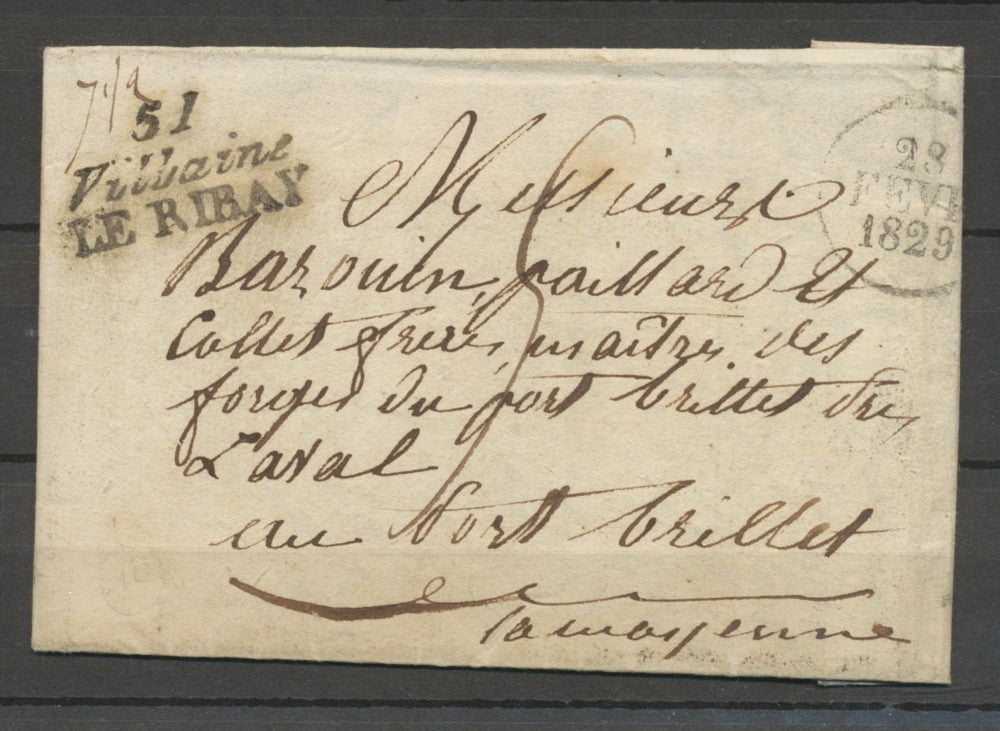 51
Villaine
LE RIBAY
28
FEVR
1829
Messieurs
Bazouin, paillard et
Collet freres, maîtres des
forges du port brillet près
Laval
au Port brillet
la mayenne